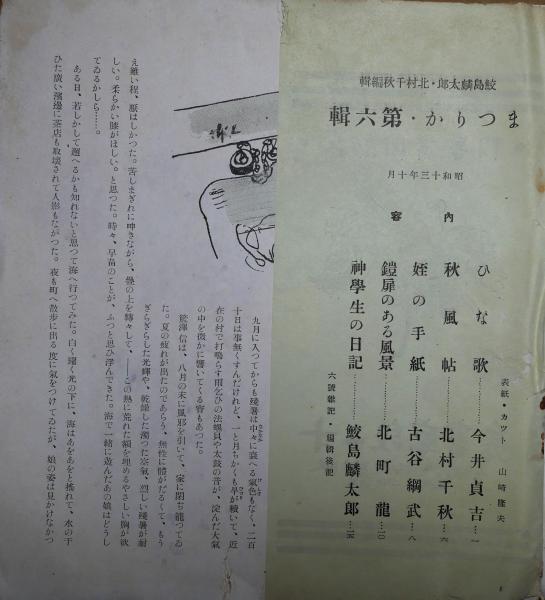 鮫島麟太郎・北村千秋編輯
まつりか・第六輯
昭和十三年十月
内容
表紙・カット 山崎隆夫
ひな歌……今井貞吉…一
秋風帖……北村千秋…六
姪の手紙……古谷綱武…八
鎧扉のある風景……北町龍…一〇
神學生の日記……鮫島麟太郎…一五
六號雜記・編輯後記
九月に入つてからも殘暑は中々に衰へる氣色もなく、二百
十日は事無くすんだけれど、一と月ちかくも旱が續いて、近
在の村で打鳴らす雨乞ひの法螺貝や太鼓の音が、淀んだ大氣
の中を微かに響いてくる宵もあつた。
信は、八月の末に風邪を引いて、家に閉ぢ籠つてゐ
た。夏の疲れが出たのであらう、無性に體がだるくて、もう
ぎらぎらした光輝や、乾燥した濁つた空氣、烈しい殘暑が耐
え難い程、厭はしかつた。苦しまぎれに呻きながら、疊の上を轉々して、――この熱に荒れた頬を埋めるやさしい胸が欲
しい。柔らかい膝がほしい。と思つた。時々、早苗のことが、ふつと思ひ浮んできた。海で一緒に遊んだあの娘はどうし
てゐるかしら……。
ある日、若しかして邂へるかも知れないと思つて海へ行つてみた。白く輝く光の下に、海はあをあをと搖れて、水の干
ひた廣い濱邊に茶店も取壞されて人影もなかつた。夜も町へ散歩に出る度に氣をつけてゐたが、娘の姿は見かけなかつ